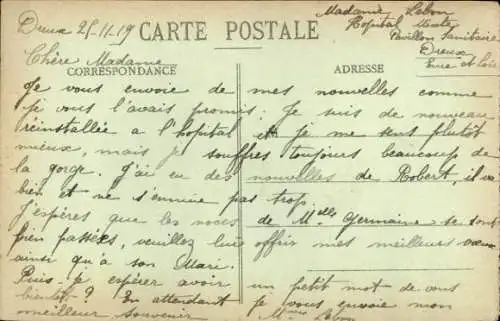 Dreux 25-11-19
CARTE POSTALE
Madame Lebon
Hopital Mixte
Pavillon Sanitaire
Dreux
Eure et Loir
Chère Madame
CORRESPONDANCE
ADRESSE
Je vous envoie de mes nouvelles comme
je vous l'avais promis. Je suis de nouveau
réinstallée a l'hopital et je me sens plutôt
mieux, mais je souffres toujours beaucoup de
la gorge. J'ai eu des nouvelles de Robert, il va
bien et ne s'ennuie pas trop.
J'espères que les noces de Melle Germaine se sont
bien passées, veuillez lui offrir mes meilleurs vœux
ainsi qu'à son Mari.
Puis-je espérer avoir un petit mot de vous
bientôt? En attendant je vous envoie mon
meilleur souvenir Mme Lebon